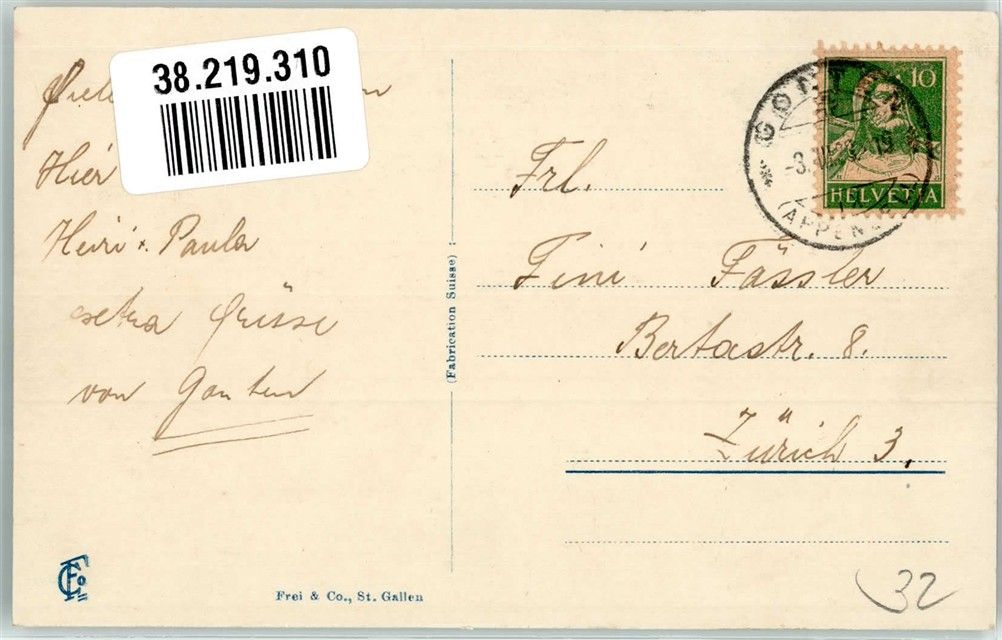 38.219.310
Hier
Heiri + Paula
extra Grüsse
von Gonten
(Fabrication Suisse)
Frei & Co., St. Gallen
GONTEN
-3. 19
(APPENZELL)
10
HELVETIA
Frl.
Fini Fässler
Bertastr. 8.
Zürich 3.
32